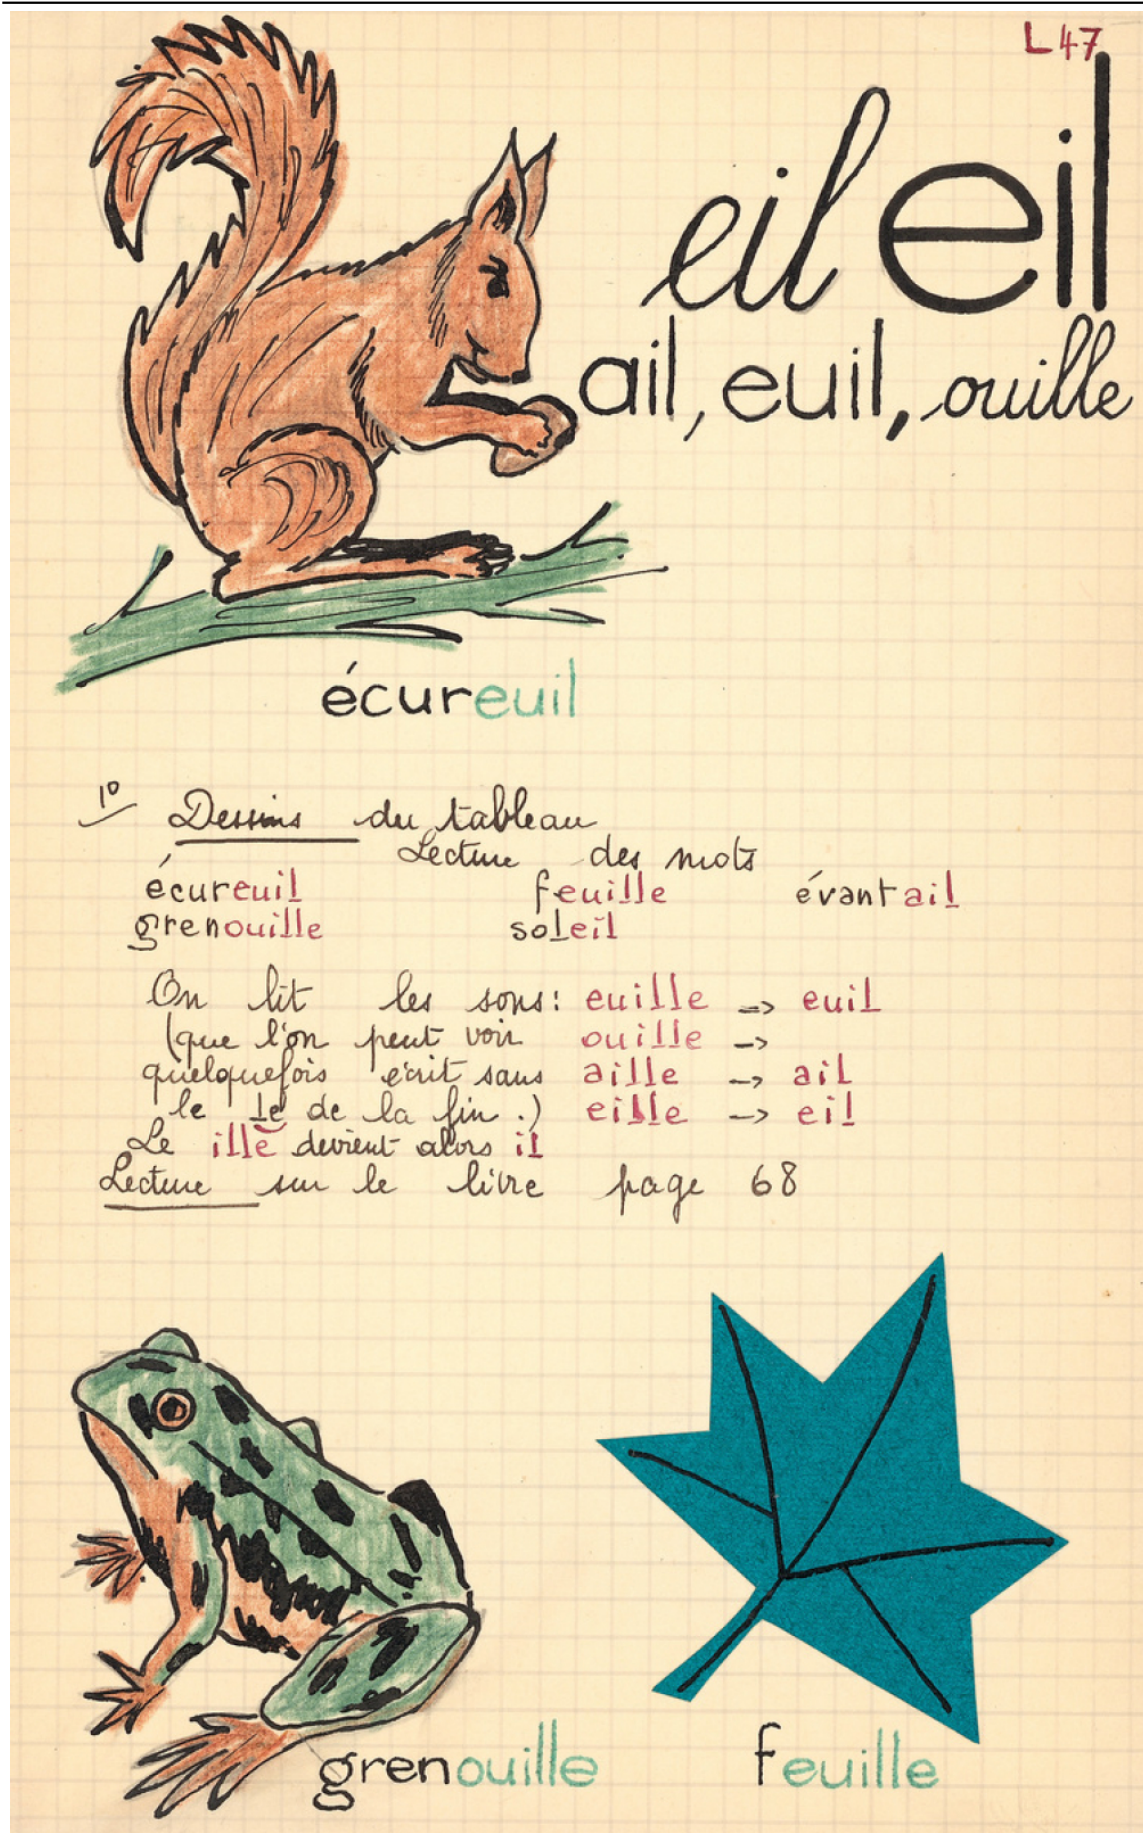 L 47
eil eil
ail, euil, ouille
écureuil
1° Dessins du tableau
Lecture des mots
écureuil feuille évantail
grenouille soleil
On lit les sons: euille -> euil
(que l'on peut voir ouille ->
quelquefois écrit sans aille -> ail
le le de la fin.) eille -> eil
Le ille devient alors il
Lecture sur le livre page 68
grenouille feuille